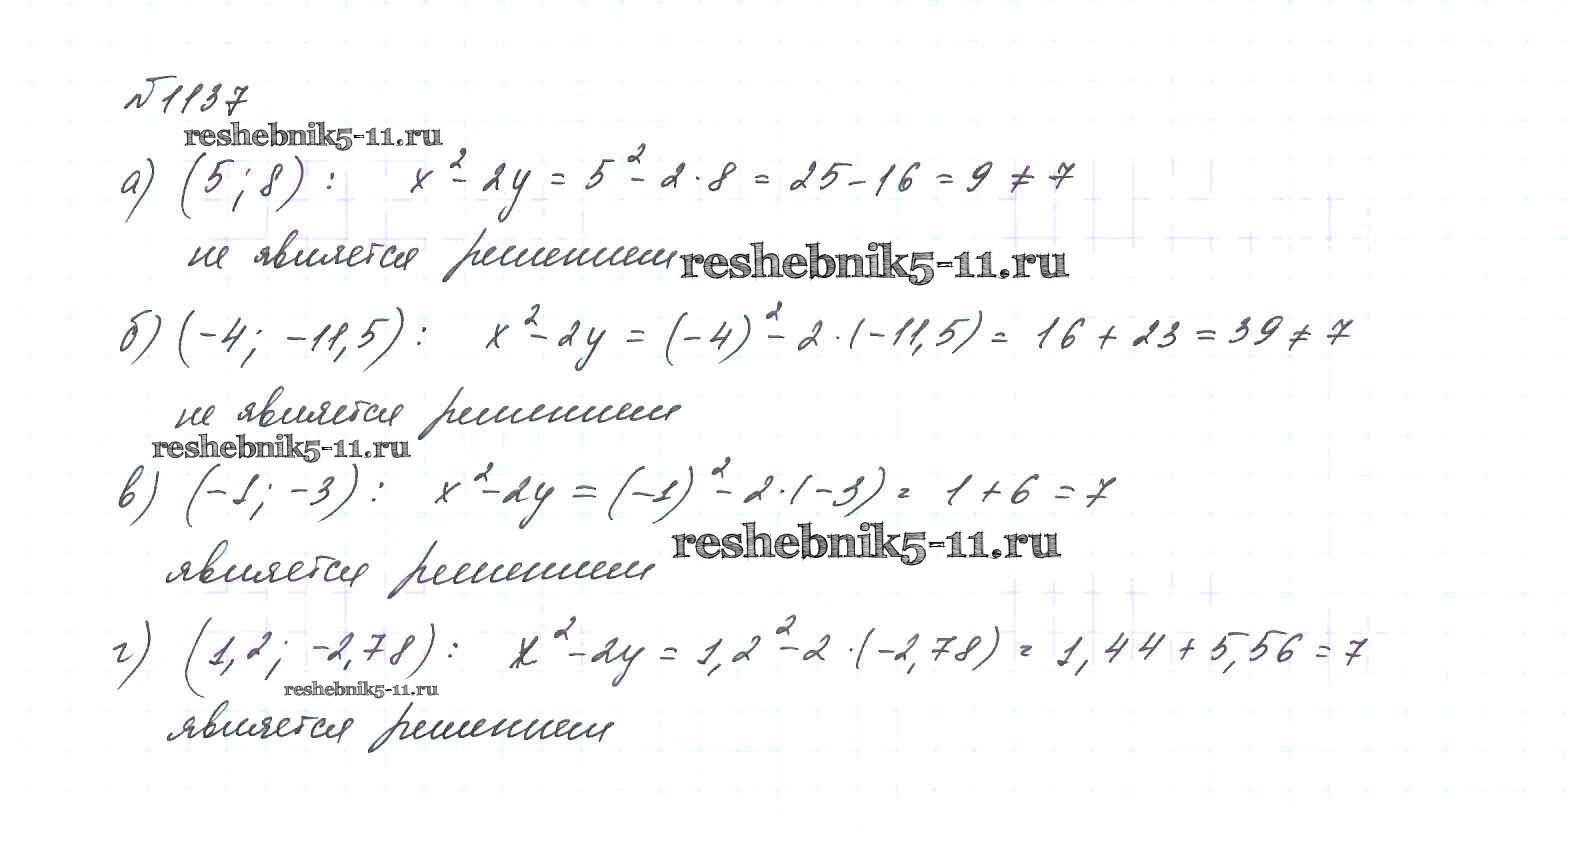 №1137
reshebnik5-11.ru
а) (5; 8): x² - 2y = 5² - 2·8 = 25 - 16 = 9 ≠ 7
не является решением reshebnik5-11.ru
б) (-4; -11,5): x² - 2y = (-4)² - 2·(-11,5) = 16 + 23 = 39 ≠ 7
не является решением
reshebnik5-11.ru
в) (-1; -3): x² - 2y = (-1)² - 2·(-3) = 1 + 6 = 7
является решением reshebnik5-11.ru
г) (1,2; -2,78): x² - 2y = 1,2² - 2·(-2,78) = 1,44 + 5,56 = 7
reshebnik5-11.ru
является решением